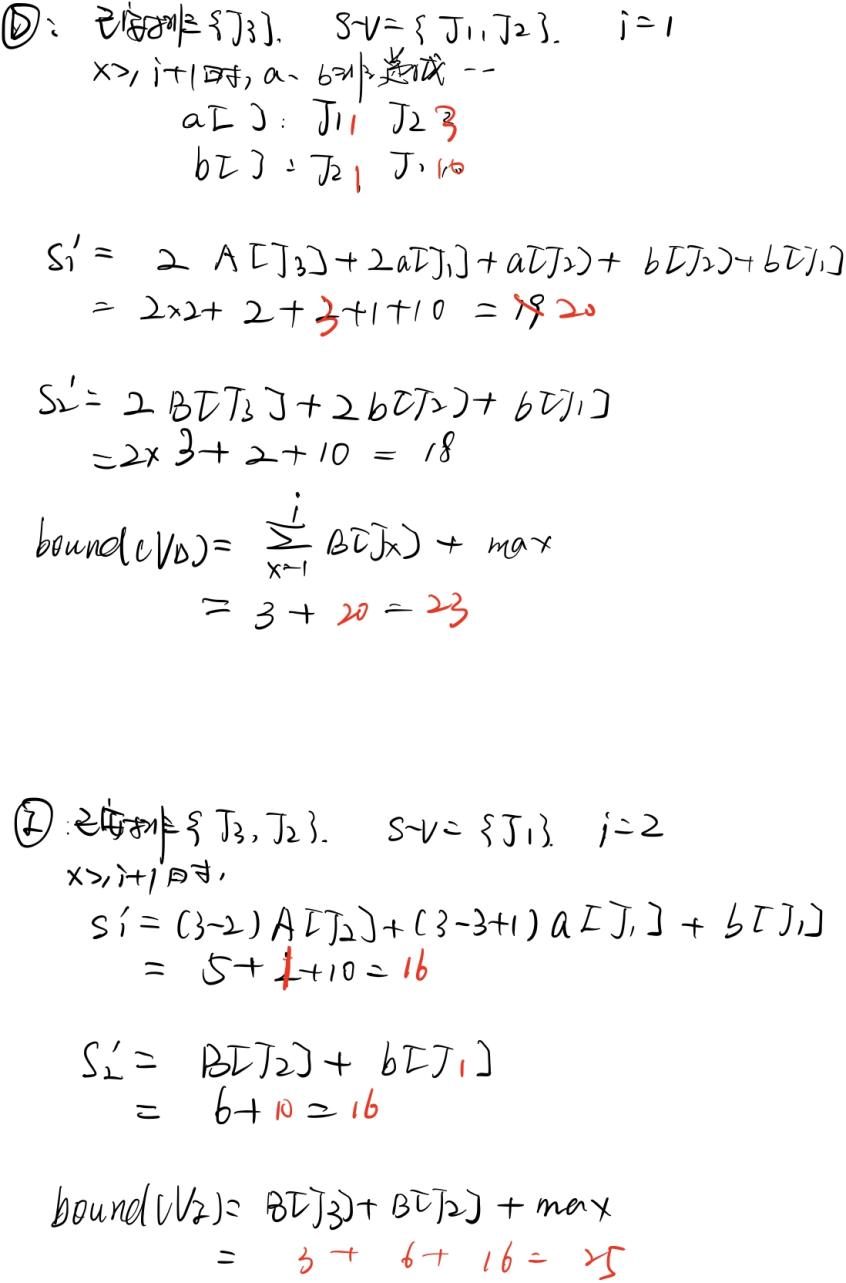 Ⓓ: 已安排 {J3}. S-V={J1, J2}. i=1
x≥i+1时, a、b排 --
a[ ]: J1 1 J2 3
b[ ]: J2 1 J1 10
S1' = 2 A[J3]+2a[J1]+a[J2]+ b[J2]+b[J1]
= 2×2+ 2+3+1+10 = 20
S2'= 2 B[J3]+2b[J2]+b[J1]
=2×3+2+10 = 18
bound(VD)= i∑x=1 B[Jx] + max
= 3+ 20 = 23
Ⓘ: 已安排{J3, J2}. S-V={J1}. i=2
x≥i+1时,
S1'=(3-2)A[J2]+(3-3+1)a[J1]+b[J1]
= 5+1+10=16
S2'= B[J2]+ b[J1]
= 6+10=16
bound(VI)= B[J3]+B[J2]+max
= 3+ 6+ 16= 25